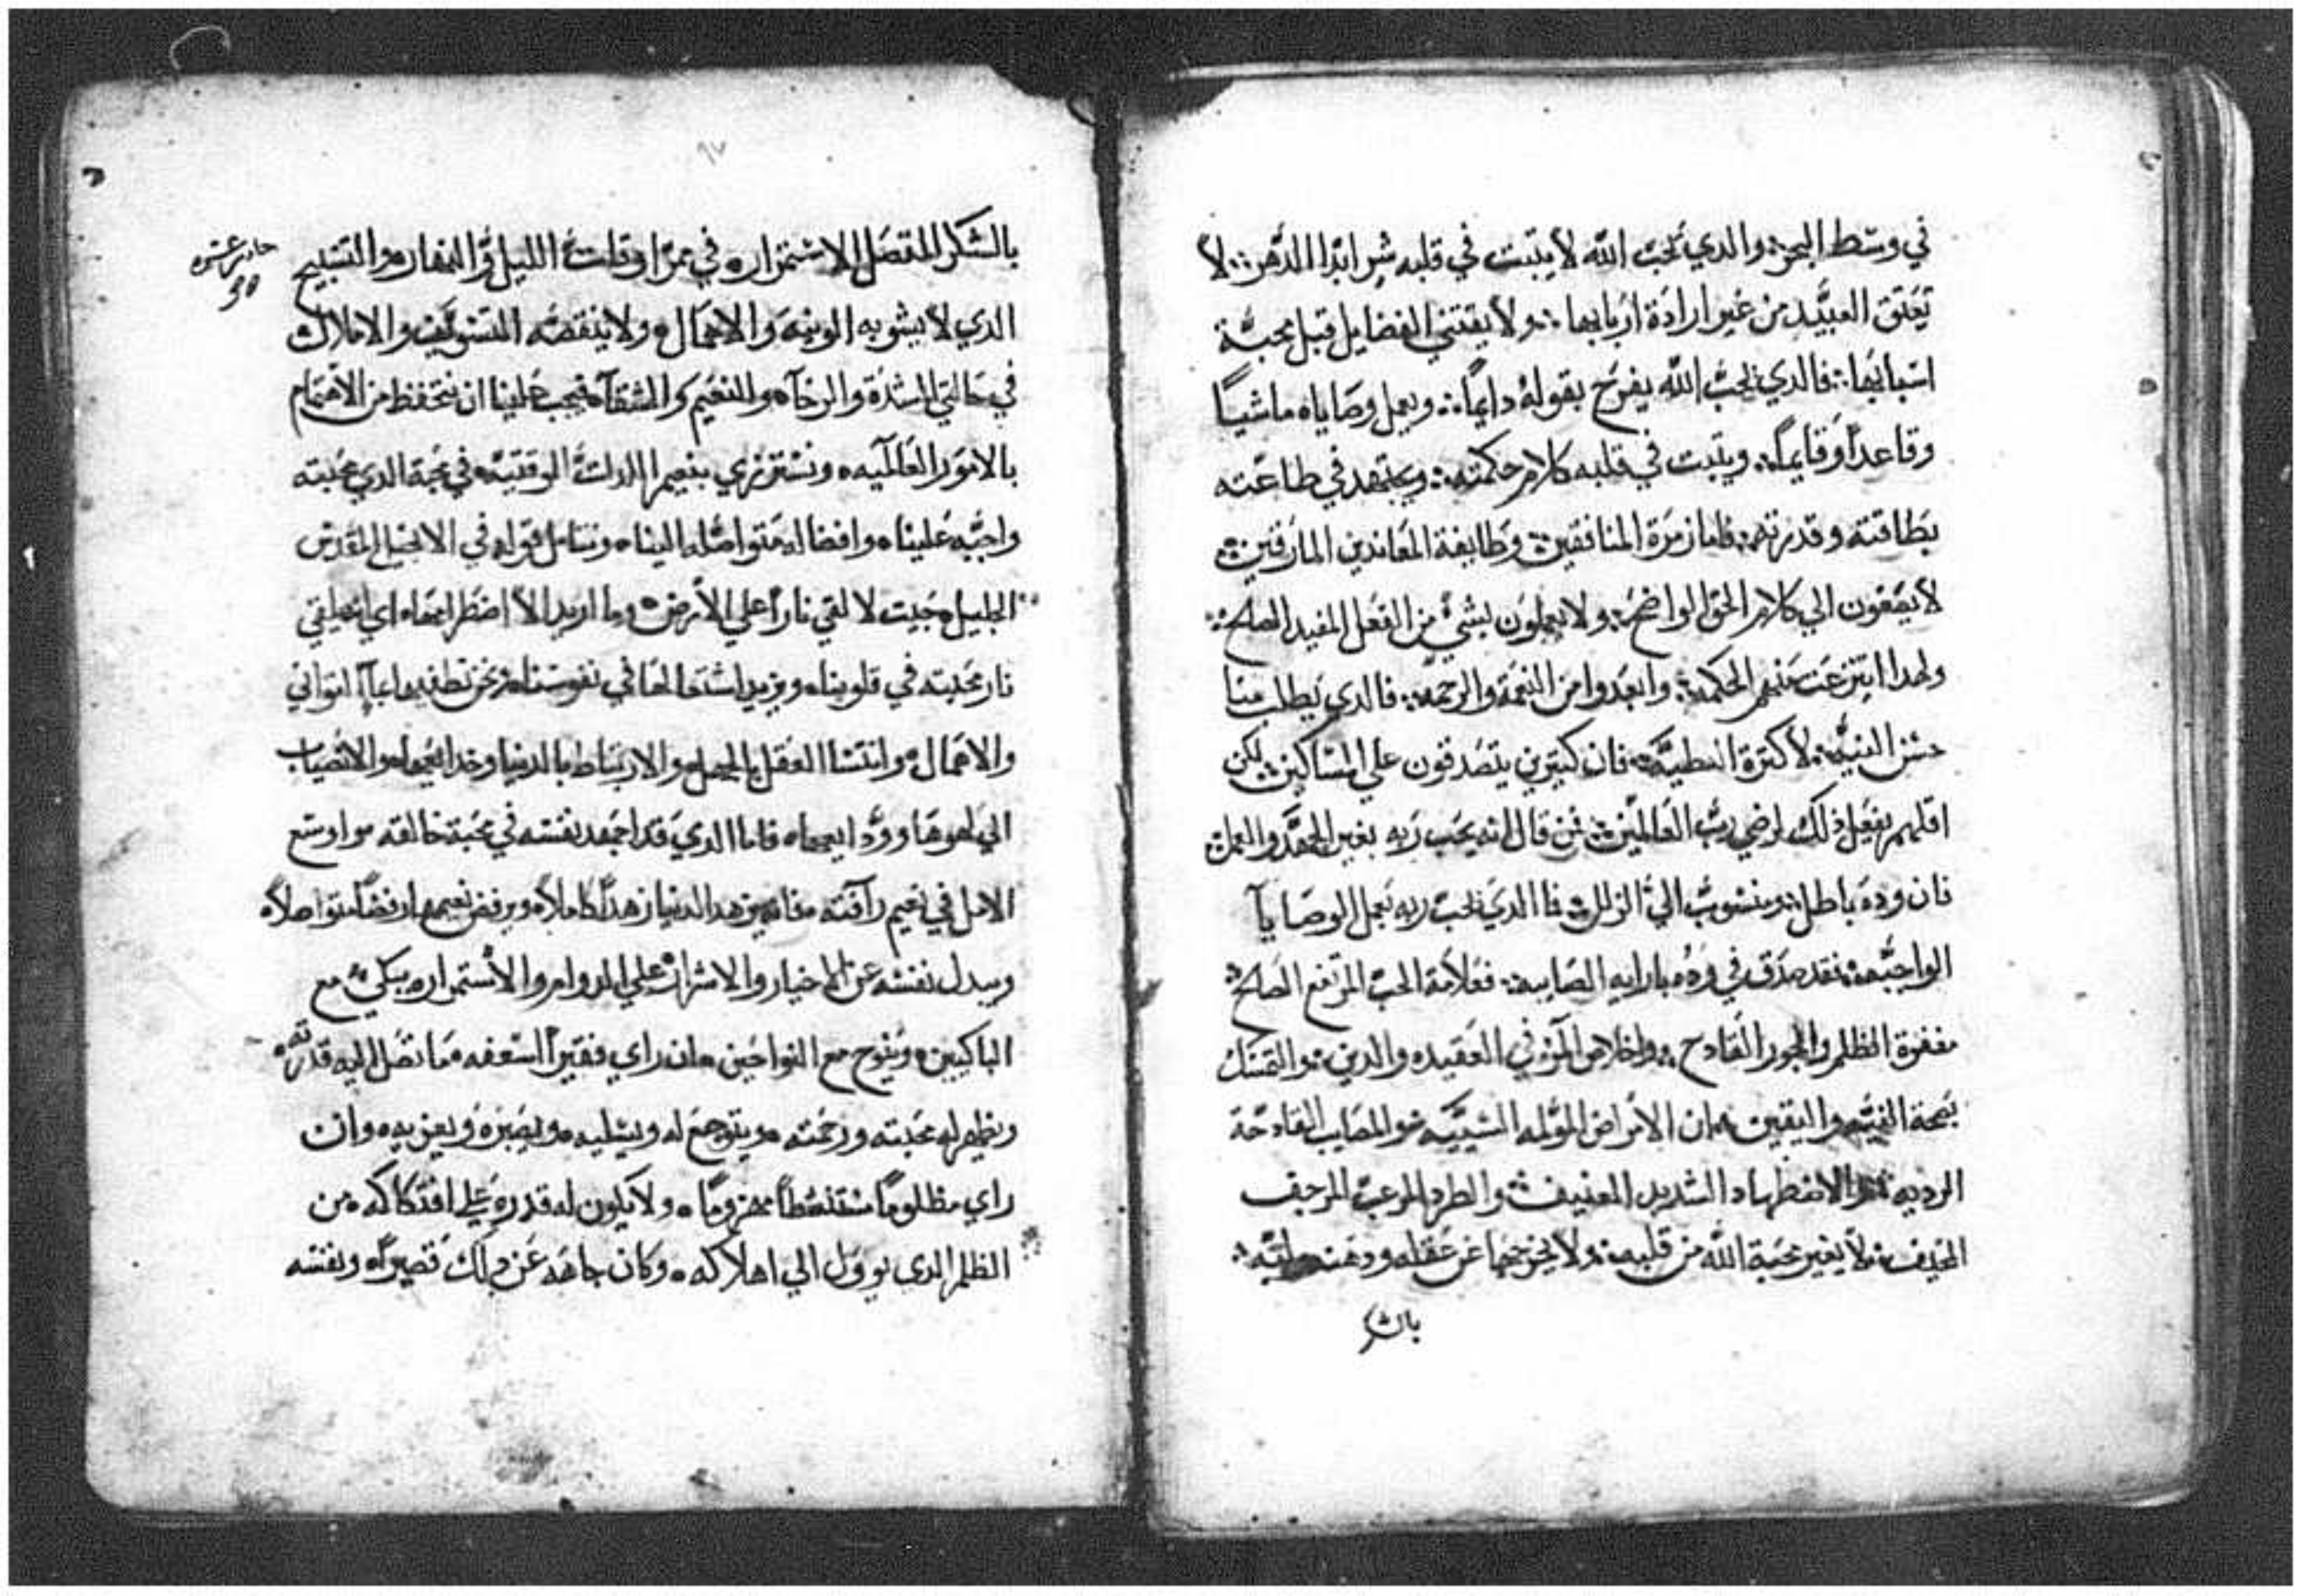 في وسط البحر؛ والدي يحب الله لا يتبت في قلبه شر ابدًا الدهر؛ لا
تعتق العبيد من غير ارادة اربابها؛ ولا يقتني الفضايل قبل محبة
اسبابها؛ فالدي يحب الله يفرح بقوله دايمًا؛ ويعمل وصاياه ماشيًا
وقاعدًا وقايمًا؛ ويتبت في قلبه كلام حكمته؛ ويجتهد في طاعته
بطاقته وقدرته؛ فاما زمرة المنافقين؛ وطايفة المعاندين المارقين؛
لا يصغون الي كلام الحق الواضح؛ ولا يعملون بشيء من الفعل المفيد الصالح؛
ولهدا انتزعت منهم الحكمه؛ وابعدوا من النعمة والرحمه؛ فالدي يطلب منا
حسن النية؛ لا كترة العطية؛ فان كتيرين يتصدقون علي المساكين؛ لكن
اقلهم يفعل ذلك لرضي رب العالمين؛ فمن قال انه يحب ربه بغير الجهد والعمل؛
فان وده باطل؛ ومنسوب الي الزلل؛ فاالدي يحب ربه يعمل الوصايا
الواجبه؛ فقد صدق في وده بارايه الصايبه؛ فعلامة الحب المرتفع الصالح؛
مغفرة الظلم والجور الفادح؛ واخلاص في العقيده والدين؛ والتمسك
بصحة النية واليقين؛ ان الامراض المؤلمه والمصايب القادحة
الرديه الاضطهاد الشديد العنيف؛ والطرد المرعب المرجف
المخيف؛ لا يغير محبة الله من قلبه؛ ولا يخرجها عن عقله ودهنه
بالشكر
حادية عشره
بالشكر المتصل الاستمرار؛ في ممر اوقات الليل والنهار؛ والتسبيح
الدي لا يشوبه الونية والاهمال؛ ولا ينقصه التسويف والاملال
في حالتي الشدة والرخآ؛ والنعيم والشقآ؛ فيجب علينا ان نتحفظ من الاهتمام
بالامور العالميه؛ ونستزري بنعيم اللدات الوقتيه؛ في محبة الدي محبته
واجبه علينا؛ وافضاله متواصله الينا؛ ونتامل قوله في الانجيل المقدس
الجليل؛ جيت لالقي نارًا علي الارض؛ وما اريد الا اضطرامها؛ اي انه يلقي
نار محبته في قلوبنا؛ ويزيد اشتعالها في نفوسنا؛ ونحن نطفيها بمآ التواني
والاهمال؛ وانتشا العقل بالجهل؛ والارتباط بالدنيا وخدايعها؛ والانصباب
الي لهوها وود؛ فاما الدي قد اجهد نفسه في محبة خالقه؛ واوسع
الامل في نعيم رآفته؛ فانه يزهد الدنيا زهدًا كاملًا؛ ويرفض نعيمها رفضًا متواصلًا؛
ويبدل نفسه عن الاخيار والاشرار؛ علي الدوام والاستمرار؛ يبكي مع
الباكيين؛ وينوح مع النواحين؛ ان راي فقيرًا اسعفه مما تصل اليه قدرته
ويظهر له محبته ورحمته؛ ويتوجع له ويسليه؛ ويصبره ويعزيه؛ وان
راي مظلومًا مهزومًا؛ ولا يكون له قدرة علي افتكاكه من
الظلم الدي يوول الي اهلاكه؛ وكان جاهه عن دلك قصيرًا؛ ونفسه